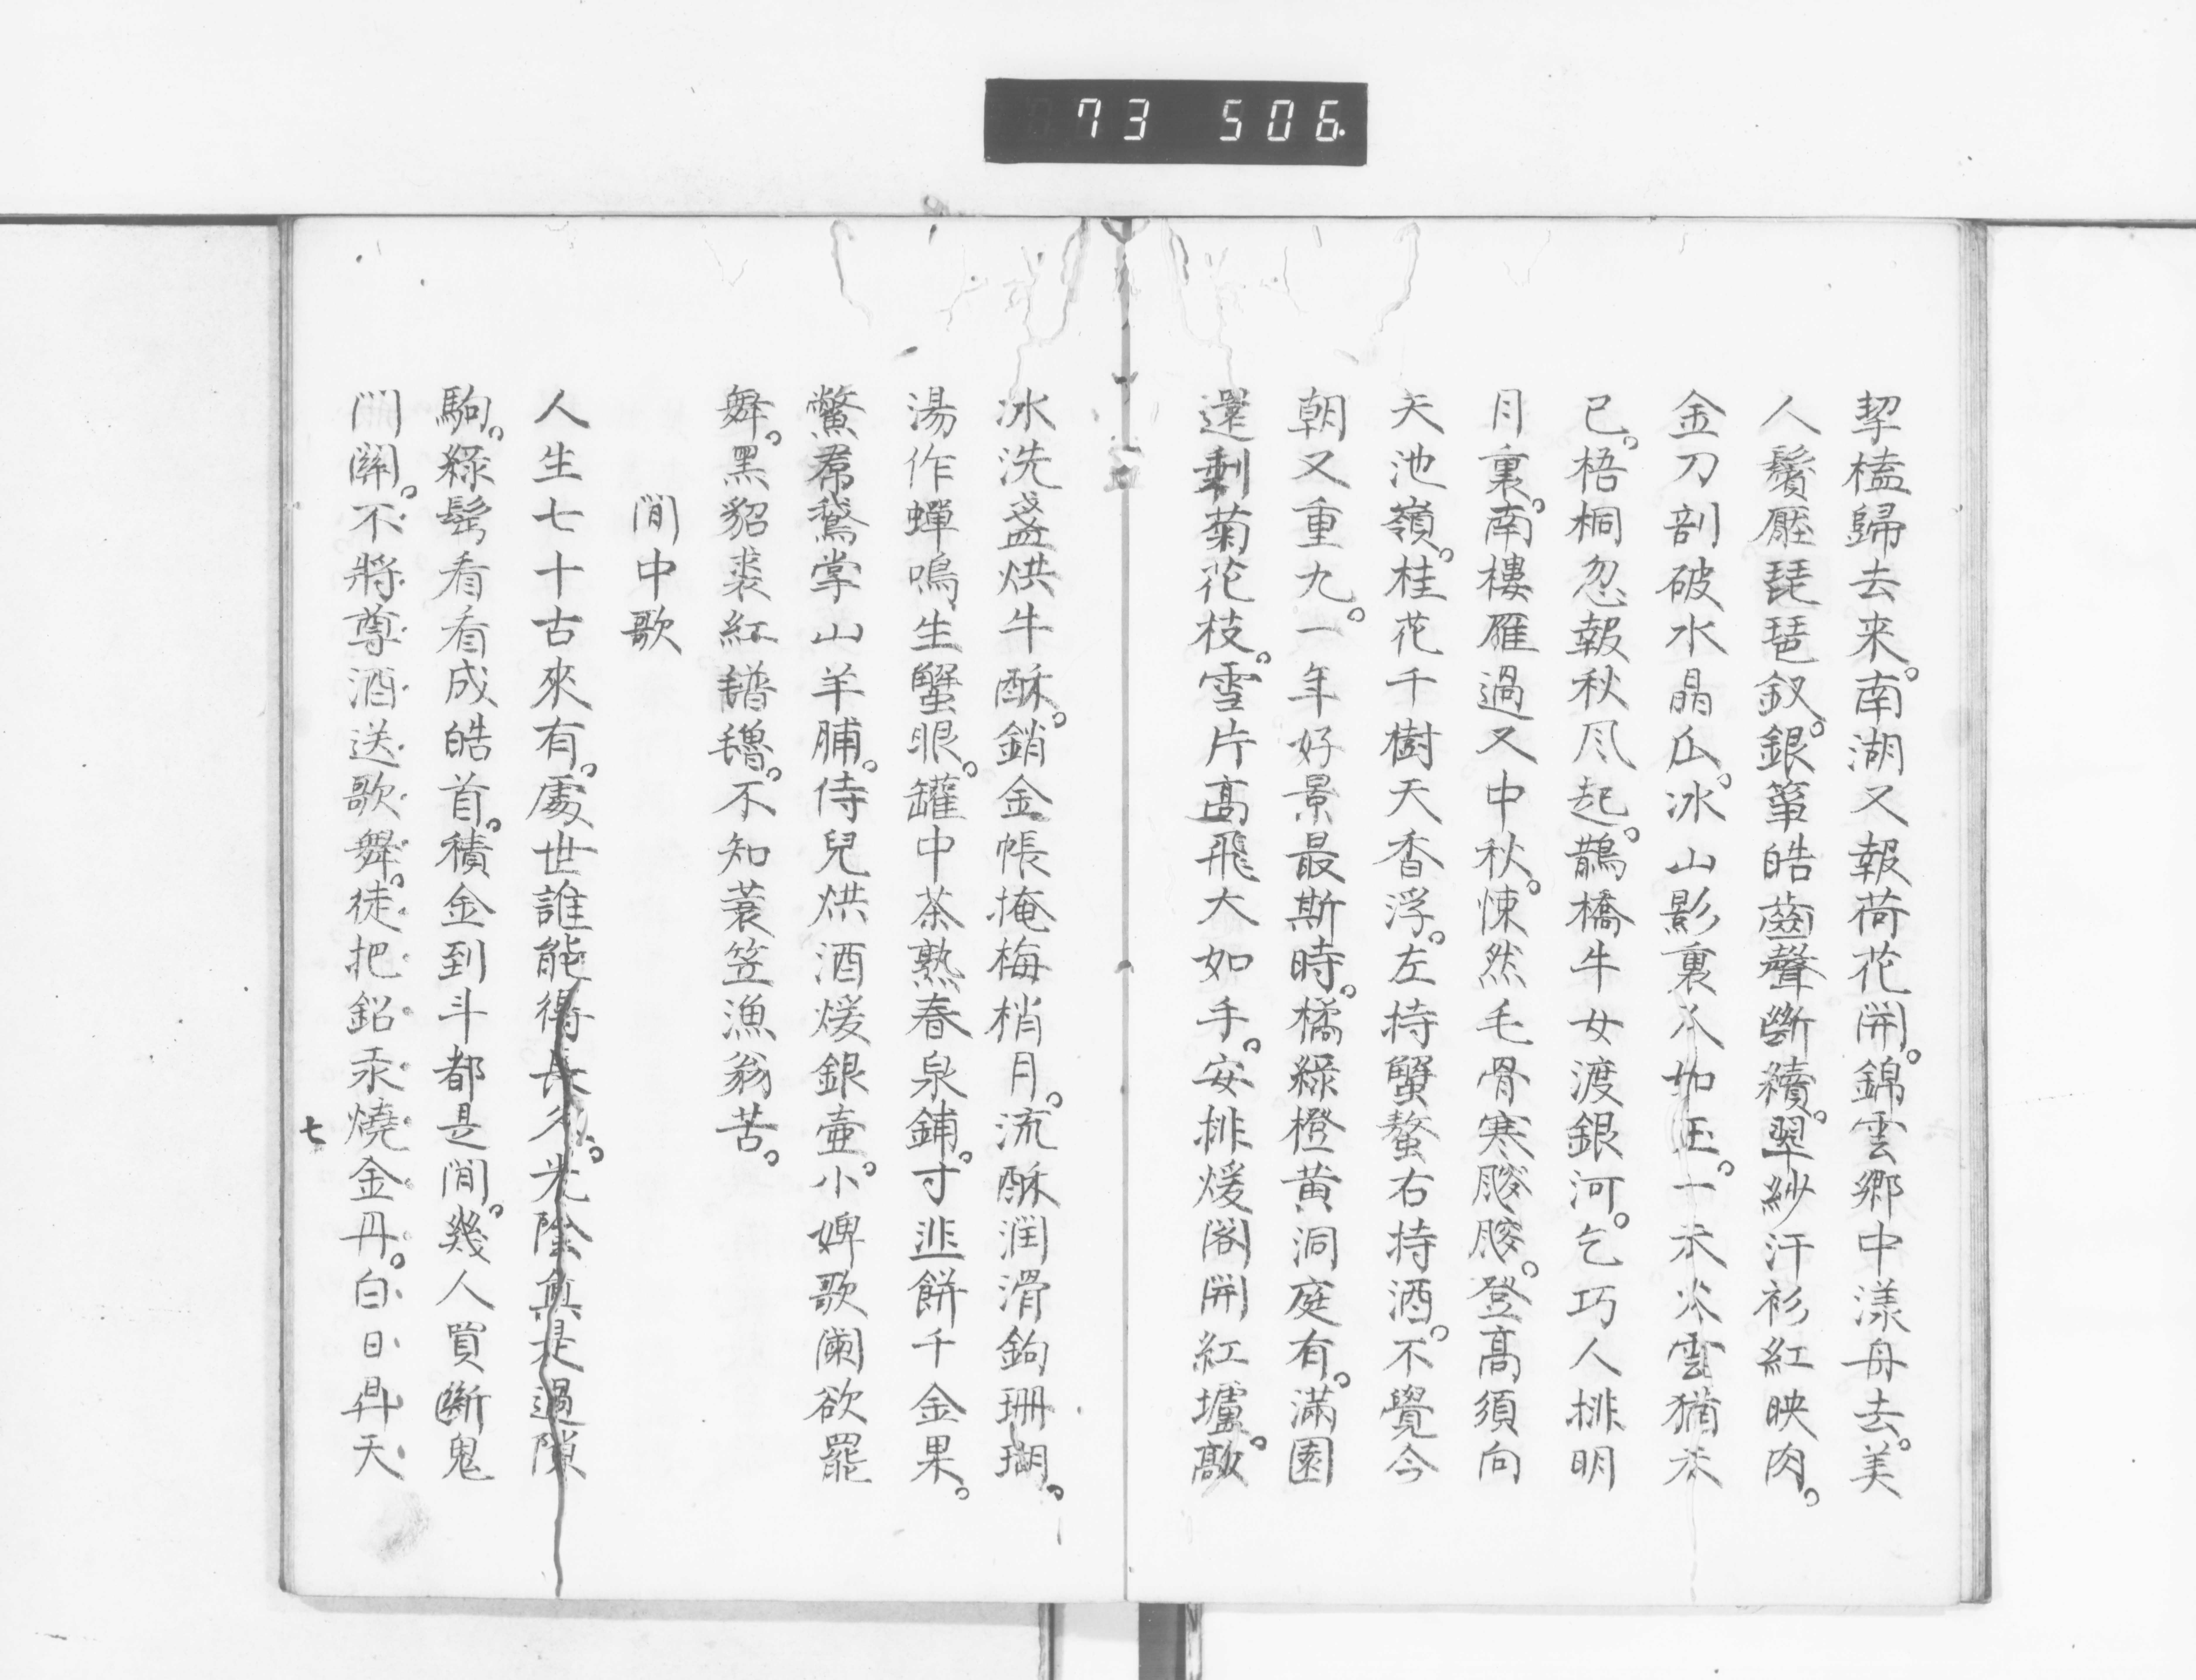 73 506
挈榼歸去来。南湖又報荷花開。錦雲鄉中漾舟去。美
人鬢壓琵琶釵。銀箏皓齒聲斷續。翠紗汗衫紅映肉。
金刀剖破水晶瓜。冰山影裏人如玉。一天火雲猶未
已。梧桐忽報秋风起。鵲橋牛女渡銀河。乞巧人排明
月裏。南樓雁過又中秋。悚然毛骨寒飕飕。登髙須向
天池嶺。桂花千樹天香浮。左持蟹螯右持酒。不覺今
朝又重九。一年好景最斯時。橘綠橙黃洞庭有。滿園
還剩菊花枝。雪片髙飛大如手。安排煖閣開紅壚。敲
冰洗盞烘牛酥。銷金帳掩梅梢月。流酥润滑鉤珊瑚。
湯作蟬鳴生蟹眼。罐中茶熟春泉鋪。寸韭餅千金果。
鱉裙鵞掌山羊脯。侍兒烘酒煖銀壷。小婢歌闌欲罷
舞。黑貂裘紅氆氇。不知蓑笠漁翁苦。
閒中歌
人生七十古來有。處世誰能得長久。光陰真是過隙
駒。綠髩看看成皓首。積金到斗都是閒。幾人買斷鬼
門關。不將尊酒送歌舞。徒把鉛汞燒金丹。白日昇天
七